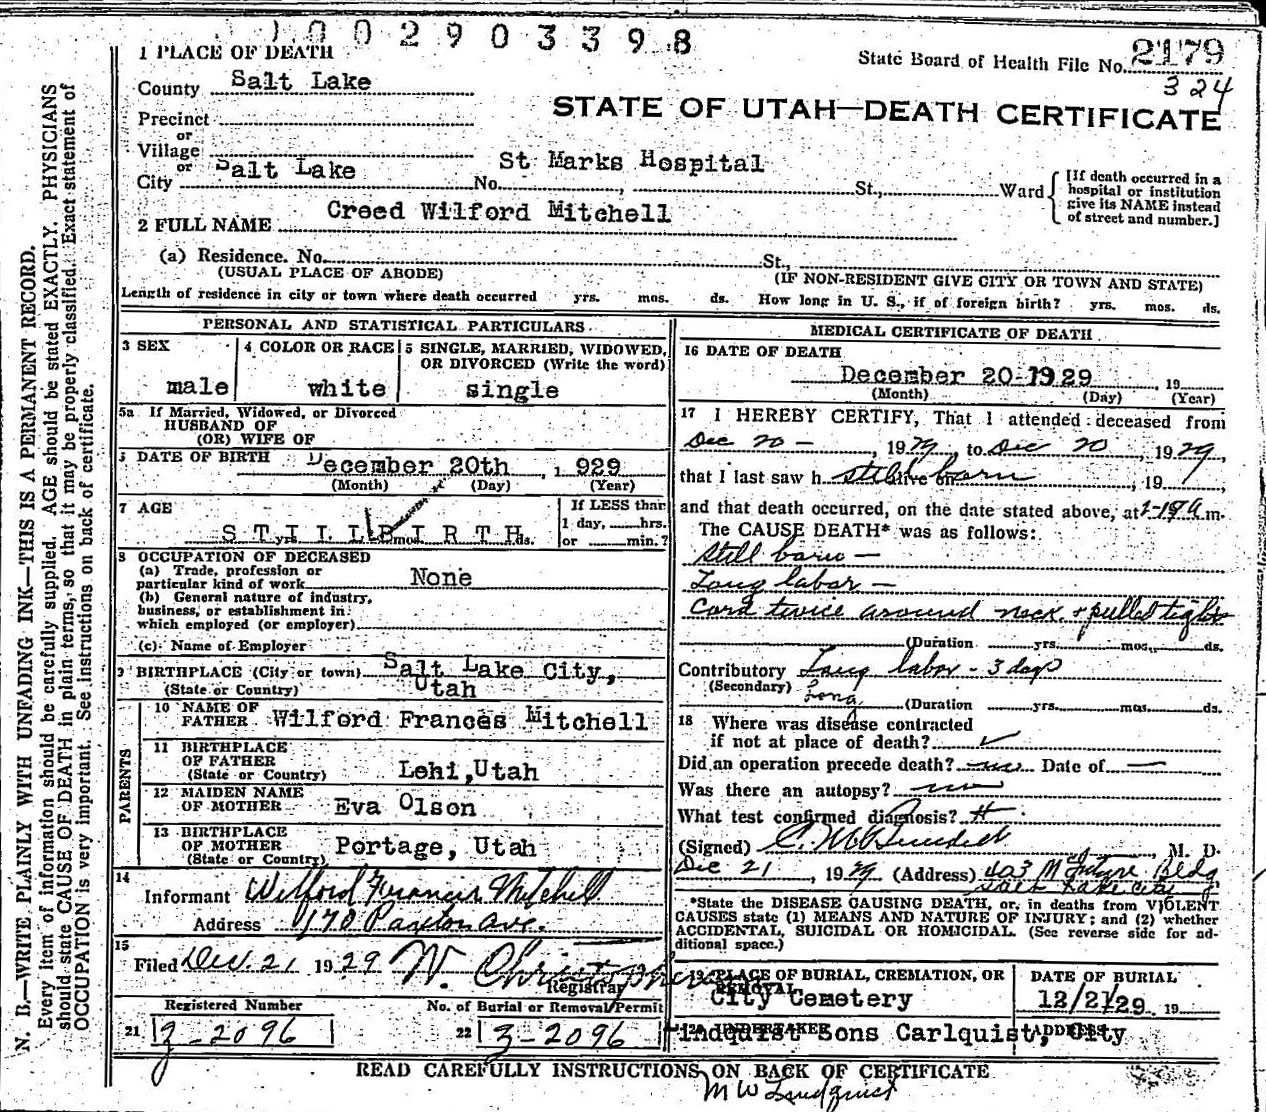 1 0 0 2 9 0 3 3 9 8
1 PLACE OF DEATH
State Board of Health File No. 2179
324
County Salt Lake
STATE OF UTAH—DEATH CERTIFICATE
Precinct
or
Village
or
City Salt Lake No. St Marks Hospital St., Ward
[If death occurred in a hospital or institution give its NAME instead of street and number.]
2 FULL NAME Creed Wilford Mitchell
(a) Residence. No. St.,
(USUAL PLACE OF ABODE) (IF NON-RESIDENT GIVE CITY OR TOWN AND STATE)
Length of residence in city or town where death occurred yrs. mos. ds. How long in U. S., if of foreign birth? yrs. mos. ds.
PERSONAL AND STATISTICAL PARTICULARS
3 SEX male
4 COLOR OR RACE white
5 SINGLE, MARRIED, WIDOWED, OR DIVORCED (Write the word) single
5a If Married, Widowed, or Divorced
HUSBAND OF
(OR) WIFE OF
DATE OF BIRTH December 20th, 1929
(Month) (Day) (Year)
7 AGE STILLBIRTH
yrs. mos. ds.
If LESS than
1 day, hrs.
or min.?
8 OCCUPATION OF DECEASED
(a) Trade, profession or
particular kind of work None
(b) General nature of industry,
business, or establishment in
which employed (or employer)
(c) Name of Employer
9 BIRTHPLACE (City or town) Salt Lake City,
(State or Country) Utah
PARENTS
10 NAME OF FATHER Wilford Frances Mitchell
11 BIRTHPLACE OF FATHER (State or Country) Lehi, Utah
12 MAIDEN NAME OF MOTHER Eva Olson
13 BIRTHPLACE OF MOTHER (State or Country) Portage, Utah
14
Informant Wilford Francis Mitchell
Address 170 Paxton Ave.
15
Filed Dec. 21 1929 W. Christopherson
Registrar
Registered Number
21 z-2096
No. of Burial or Removal Permit
22 z-2096
MEDICAL CERTIFICATE OF DEATH
16 DATE OF DEATH
December 20-1929, 19
(Month) (Day) (Year)
17 I HEREBY CERTIFY, That I attended deceased from
Dec 20 -, 1929, to Dec 20, 1929,
that I last saw h still born alive on, 19,
and that death occurred, on the date stated above, at m.
The CAUSE DEATH* was as follows:
Still born —
Long labor —
Cord twice around neck + pulled tight
(Duration yrs. mos. ds.
Contributory Long labor - 3 days
(Secondary) Long
(Duration yrs. mos. ds.
18 Where was disease contracted
if not at place of death?
Did an operation precede death? no Date of —
Was there an autopsy? no
What test confirmed diagnosis?
(Signed) M. D.
Dec 21, 1929 (Address) 403 McIntyre Bldg
Salt Lake City
*State the DISEASE CAUSING DEATH, or, in deaths from VIOLENT
CAUSES state (1) MEANS AND NATURE OF INJURY; and (2) whether
ACCIDENTAL, SUICIDAL OR HOMICIDAL. (See reverse side for ad-
ditional space.)
19 PLACE OF BURIAL, CREMATION, OR REMOVAL
City Cemetery
DATE OF BURIAL
12/21/29 19
20 UNDERTAKER ADDRESS
Lindquist Sons Carlquist, City
READ CAREFULLY INSTRUCTIONS ON BACK OF CERTIFICATE
M W Lindquist
N. B.—WRITE PLAINLY WITH UNFADING INK—THIS IS A PERMANENT RECORD.
Every item of information should be carefully supplied. AGE should be stated EXACTLY. PHYSICIANS
should state CAUSE OF DEATH in plain terms, so that it may be properly classified. Exact statement of
OCCUPATION is very important. See instructions on back of certificate.